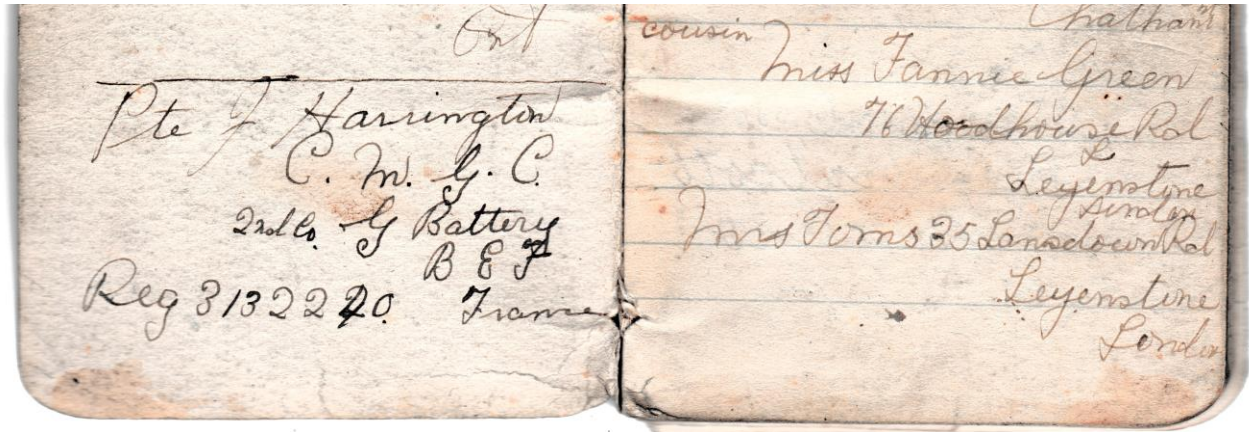 Ont
Pte J Harrington
C. M. G. C.
2nd Co. G Battery
B E F
Reg 3132220. France
Chatham
cousin
Miss Fannie Green
76 Woodhouse Rd
Leyenstone
London
Mrs Toms 35 Lansdown Rd
Leyenstone
London